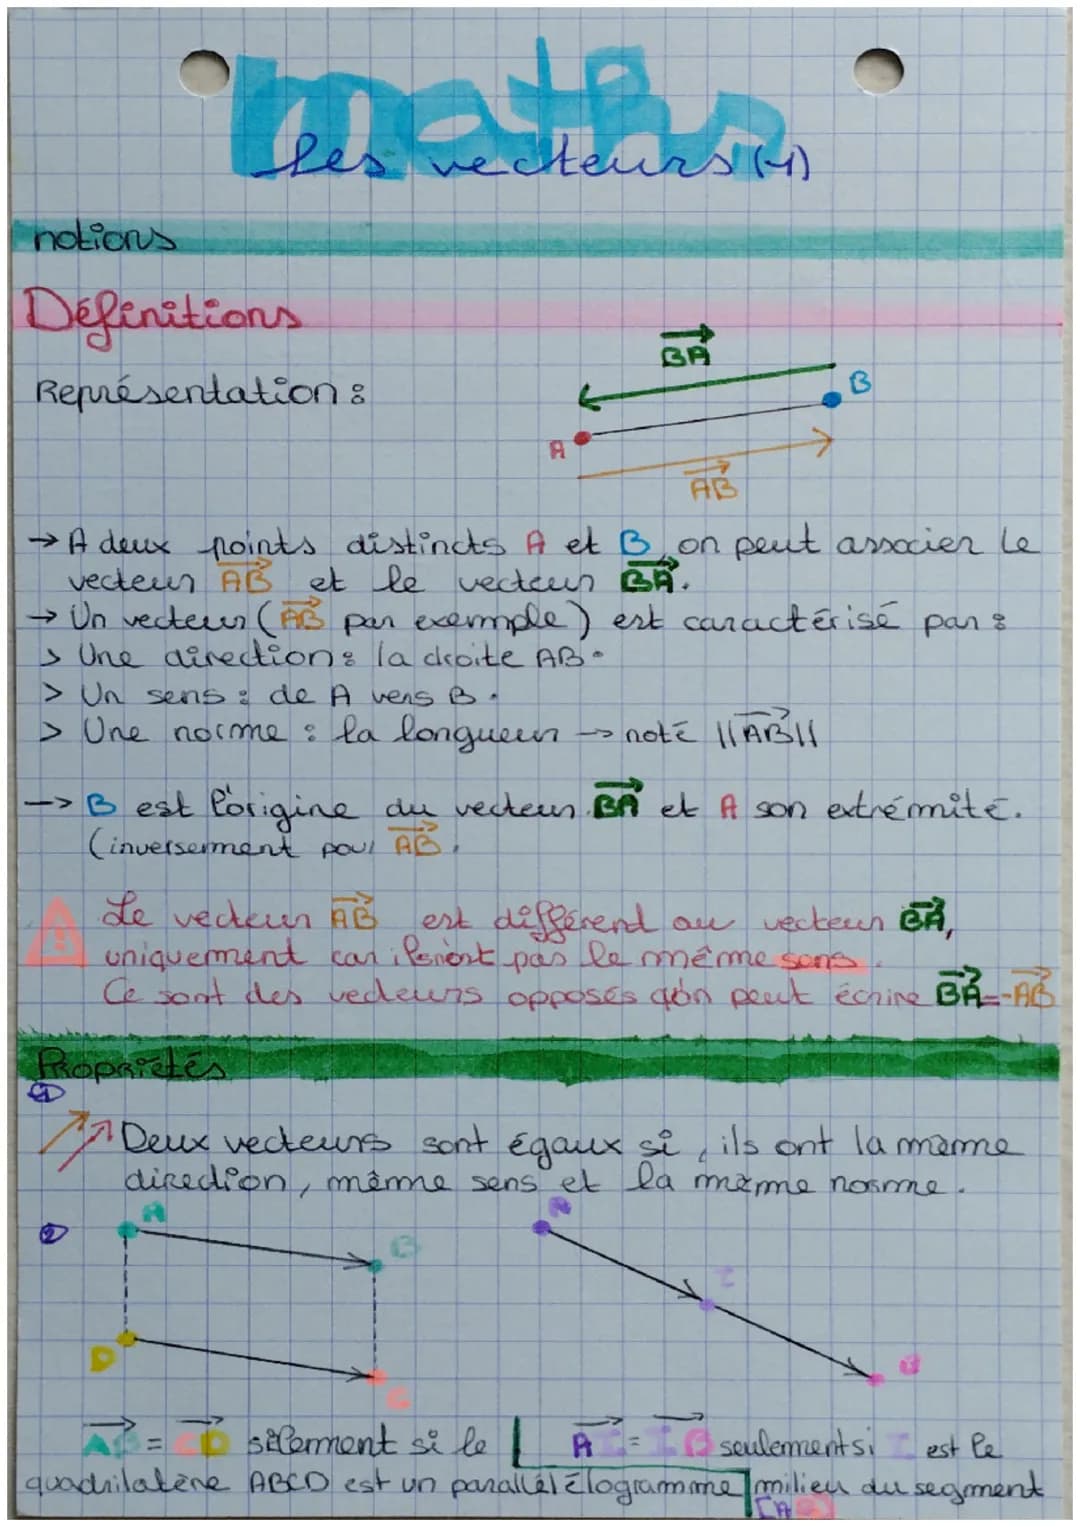 maths
Les vecteurs (1)
notions
Définitions
BA
Représentation :
B
A
AB
→ A deux points distincts A et B, on peut associer le
vecteur AB et le vecteur BA.
→ Un vecteur (AB par exemple) est caractérisé par :
> Une direction : la droite AB.
> Un sens : de A vers B.
> Une norme : la longueur → noté ||AB||
--> B est l'origine du vecteur BA et A son extrémité.
(inversement pour AB.
! Le vecteur AB est différend au vecteur BA,
uniquement car ils n'ont pas le même sens.
Ce sont des vecteurs opposés qu'on peut écrire BA=-AB
Propriétés
①
Deux vecteurs sont égaux si, ils ont la même
direction, même sens et la même norme.
②
A
B
D
C
A
I
B
AB = CD si le
quadrilatère ABCD est un parallélélogramme
AI = IB seulement si I est le
milieu du segment
[AB]